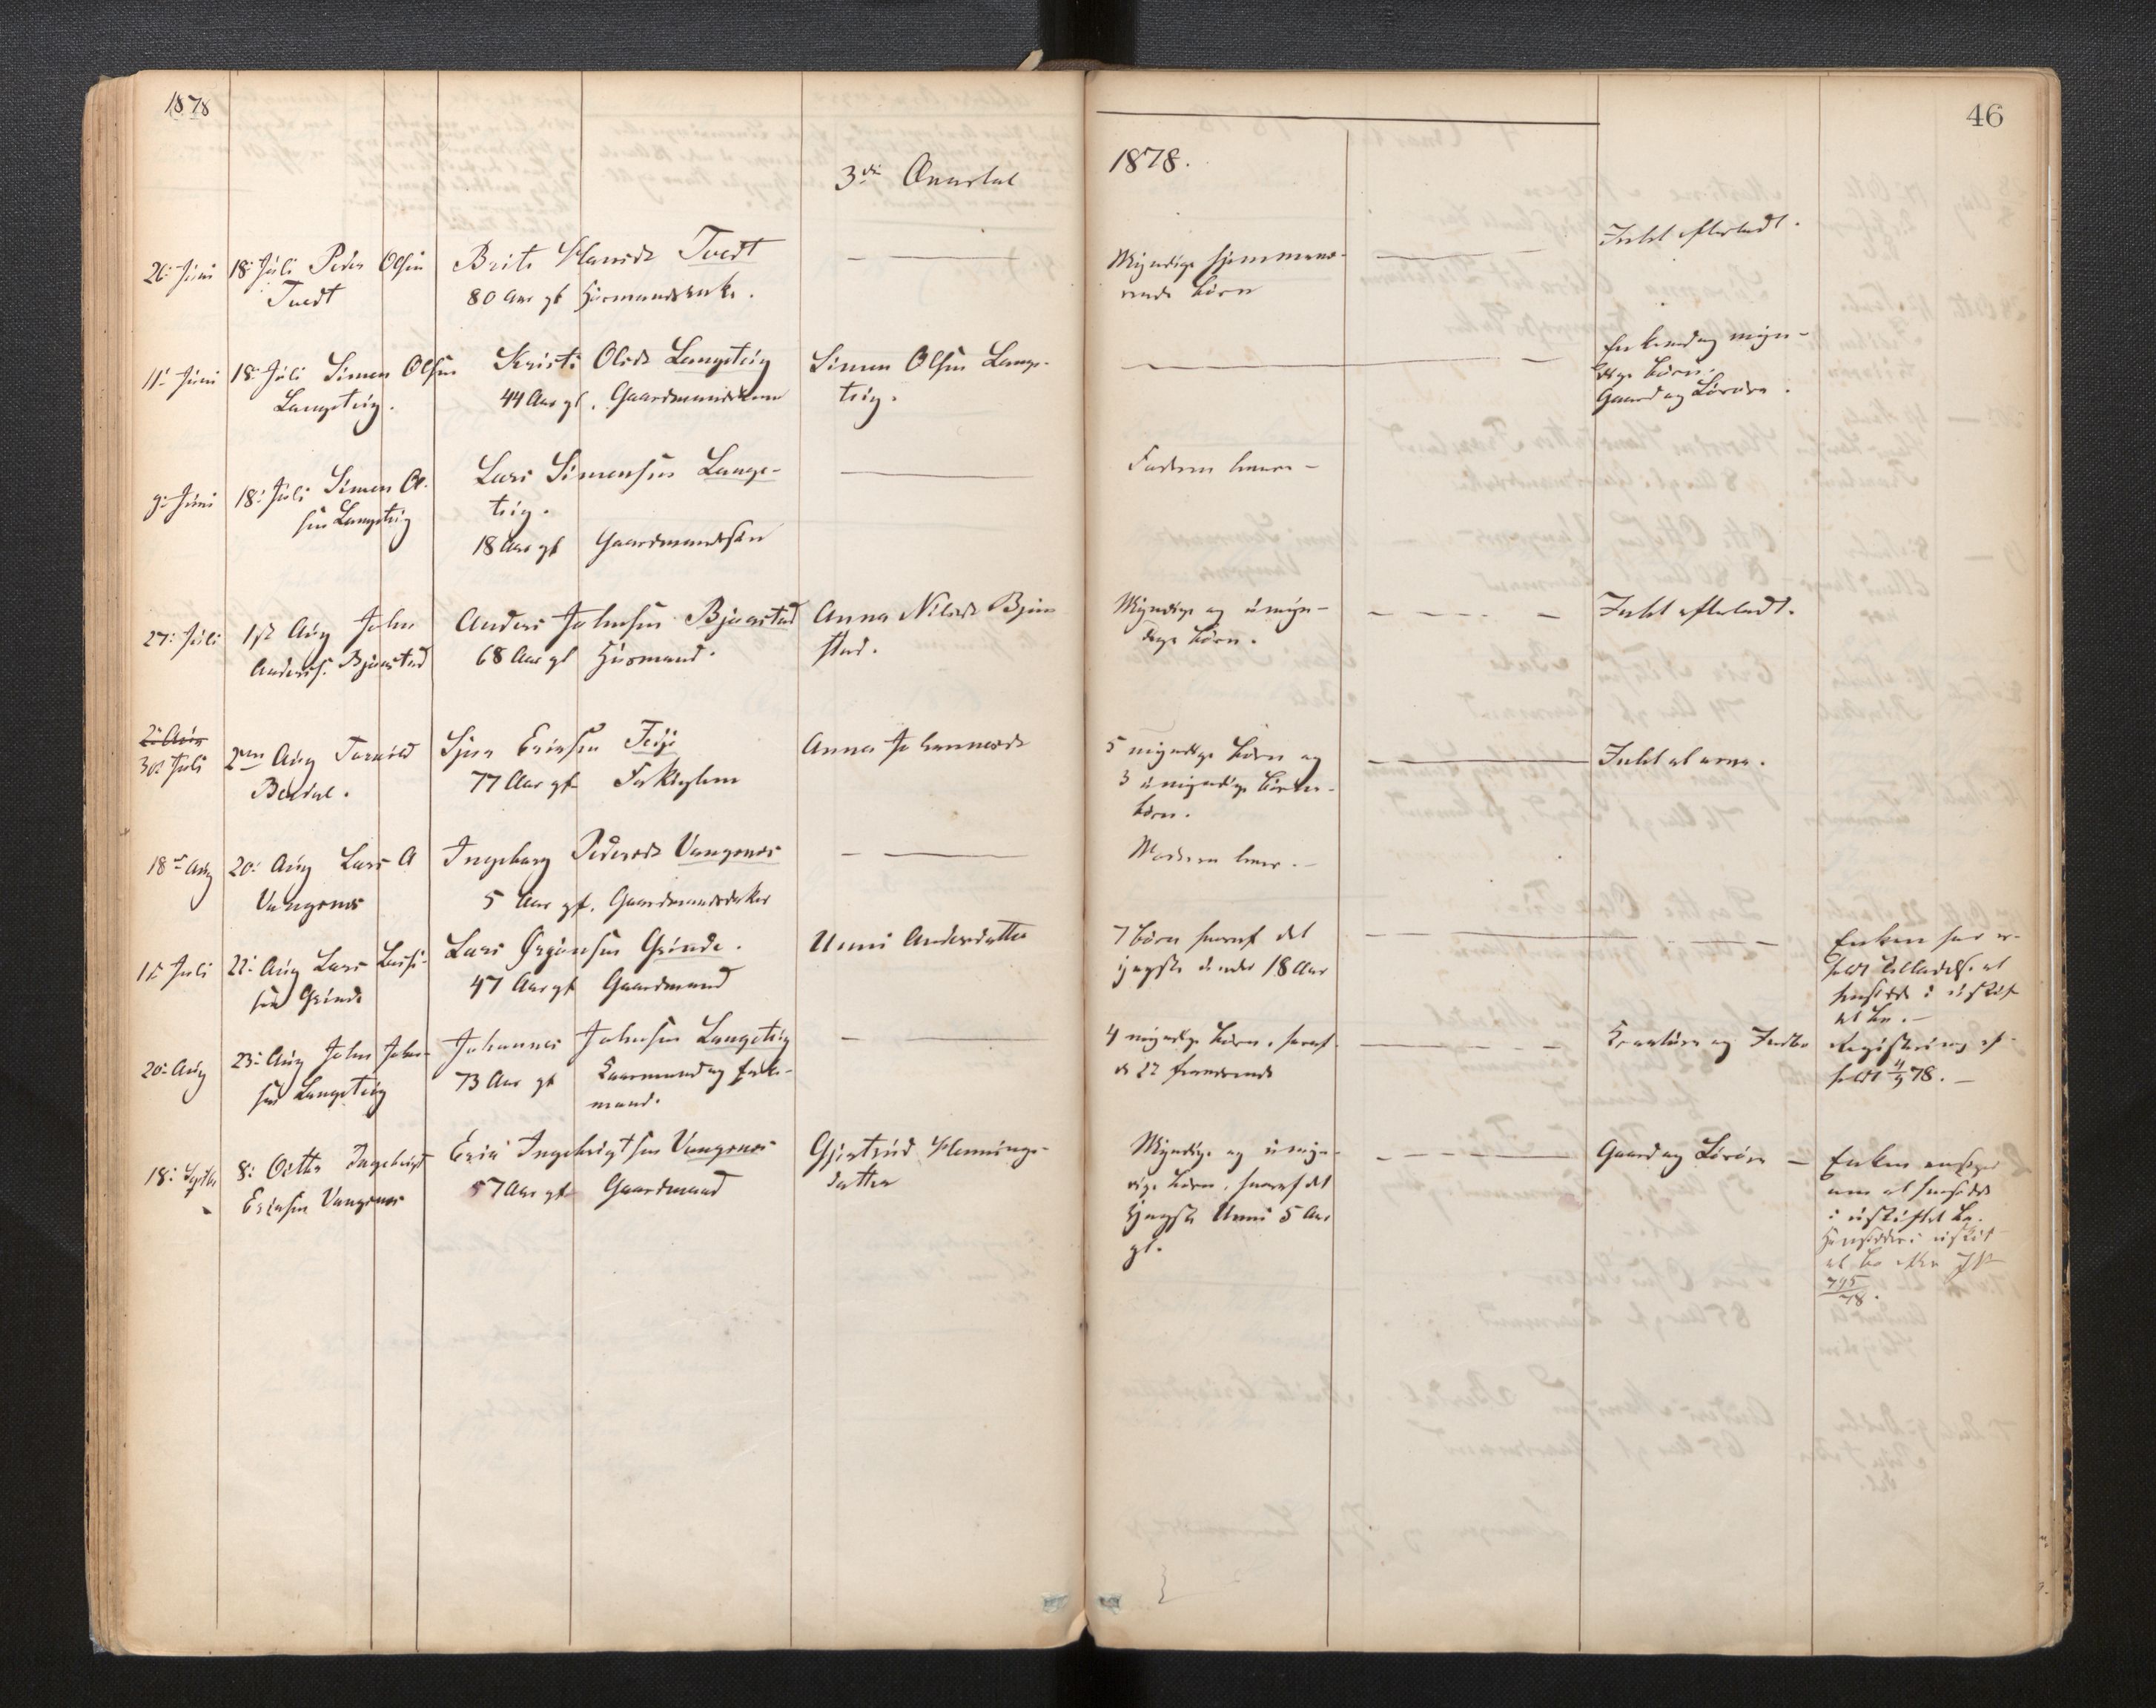 1878
46
3die Qvartal
1878.
26: Juni 18: Juli Peder Olsen
Tvedt
Brite Hansdr Tvedt
80 Aar gl Huusmandsenke.
Myndige hjemmevæ-
rende børn
Intet efterladt.
11: Juni 18: Juli Simen Olsen
Langeteig.
Kristi Olsdr Langeteig
44 Aar gl. Gaardmandskone
Simen Olsen Lange-
teig.
Enkemand og myn-
dige børn.
Gaard og Løsøre.
9: Juni 18: Juli Simen Ol-
sen Langeteig
Lars Simensen Lange-
teig.
18 Aar gl Gaardmandsøn
Faderen lever –
27: Juli 1ste Aug John
Anders. Bjørastad
Anders Johnsen Bjørastad
68 Aar gl Huusmand.
Anna Nilsdr Bjøra
stad.
Myndige og umyn-
dige børn.
Intet efterladt.
2: Aug
30: Juli 2den Aug
Sjur Eriksen Fedje
77 Aar gl Fattiglem
Anna Johannesdr
5 myndige børn og
3 umyndige børne-
børn.
Intet at arve.
18: Aug 20: Aug Lars A
Vangsnes
Ingeborg Pedersdr Vangsnes
5 Aar gl. Gaardmandsdatter
Moderen lever. –
1ste Juli 22: Aug Lars Larse-
sen Grinde
Lars Ørjansen Grinde.
47 Aar gl Gaardmand
Unni Andersdatter
7 børn hvoraf det
yngste under 18 Aar
Enken har er-
holdt Tilladelse at
hensidde i uskift-
et bo. –
20: Aug 23: Aug John John-
sen Langeteig
Johannes Johnsen Langeteig
73 Aar gl Kaarmand og Enke-
mand.
4 myndige børn, hvoraf
de 22 fraværende
Kreaturer og Indbo
Registrering af-
holdt 4/9 78. –
18: Septbr 8: Octbr Ingebrigt
Eriksen Vangsnes
Erik Ingebrigtsen Vangsnes
57 Aar gl Gaardmand
Gjertrud Hennings-
datter
Myndige og umyn-
dige børn, hvoraf det
yngste Unni 5 Aar
gl.
Gaard og Løsøre –
Enken ansøger
om at hensidde
i uskiftet bo.
Hensidder i uskift-
et bo efter
795/78.